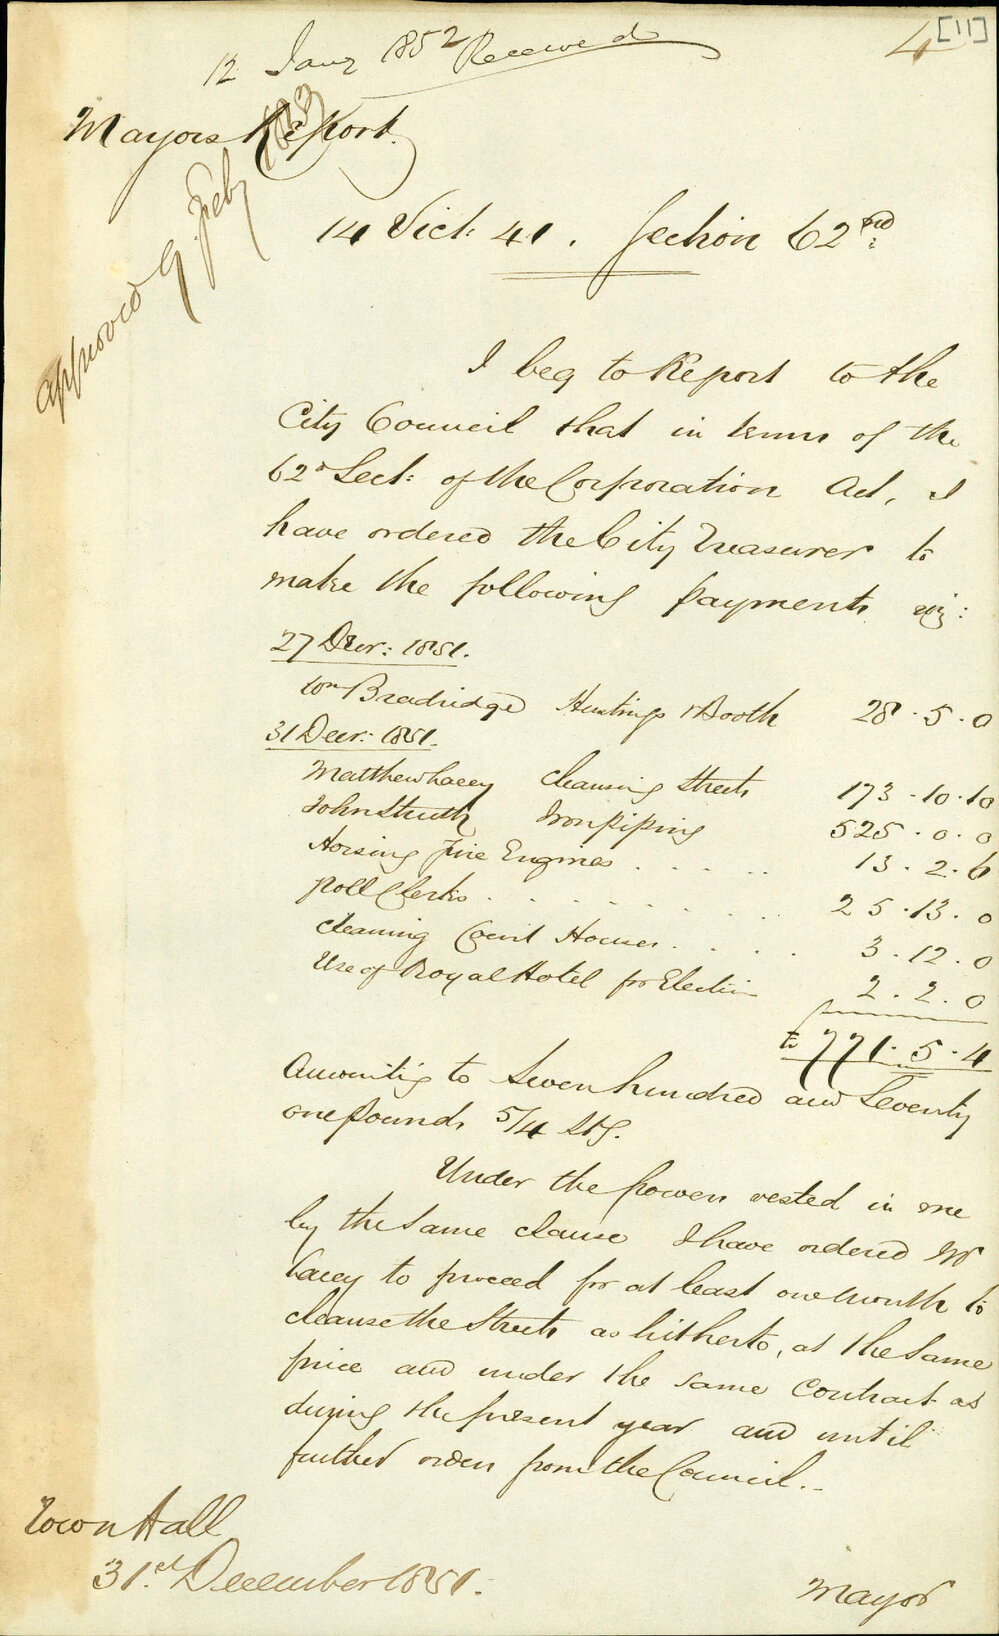 4 [11]
12 Jany 1852 Received
Mayors Report.
approved 9 Feby
14 Vict: 41. Section 62nd:
I beg to Report to the
City Council that in terms of the
62d Sect: of the Corporation Act, I
have ordered the City Treasurer to
make the following payments viz:
27 Decr: 1851.
Wm Bradridge Hustings & Booth 28.5.0
31 Decr: 1851.
Matthew Lacey Cleansing Streets 173.10.10
John Struth Iron piping 525.0.0
Horsing Fire Engines . . . . . 13.2.6
Poll Clerks . . . . . . . . . . 25.13.0
Cleaning Court Houses . . . . 3.12.0
Use of Royal Hotel for Election 2.2.0
£ 771.5.4
Amounting to Seven hundred and Seventy
one pounds 5/4 Stg.
Under the powers vested in me
by the same clause I have ordered Mr
Lacey to proceed for at least one month to
cleanse the Streets as hitherto, at the same
price and under the same Contract as
during the present year and until
further orders from the Council.
Town Hall
31st. December 1851.
Mayor